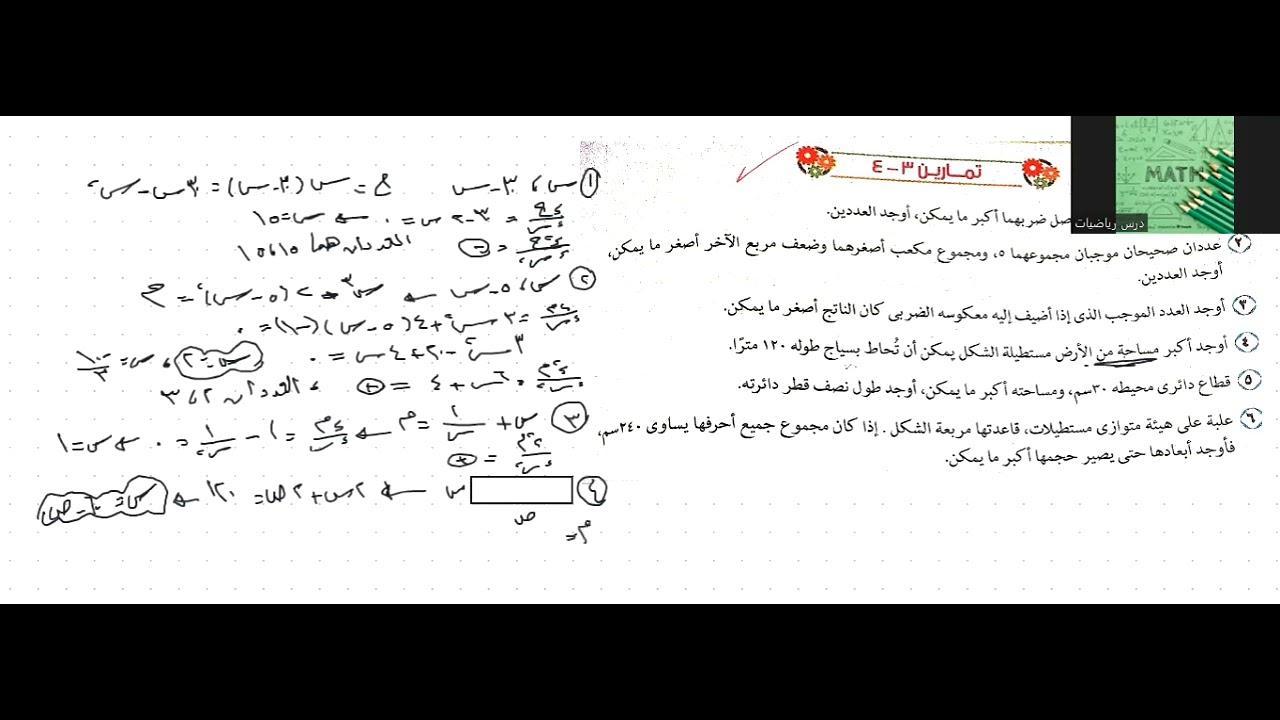 تمارين ٣-٤
MATH
درس رياضيات
ضربهما أكبر ما يمكن، أوجد العددين.
٢ عددان صحيحان موجبان مجموعهما ٥، ومجموع مكعب أصغرهما وضعف مربع الآخر أصغر ما يمكن،
أوجد العددين.
٣ أوجد العدد الموجب الذى إذا أضيف إليه معكوسه الضربى كان الناتج أصغر ما يمكن.
٤ أوجد أكبر مساحة من الأرض مستطيلة الشكل يمكن أن تُحاط بسياج طوله ١٢٠ مترًا.
٥ قطاع دائرى محيطه ٣٠سم، ومساحته أكبر ما يمكن، أوجد طول نصف قطر دائرته.
٦ علبة على هيئة متوازى مستطيلات، قاعدتها مربعة الشكل. إذا كان مجموع جميع أحرفها يساوى ٢٤٠سم،
فأوجد أبعادها حتى يصير حجمها أكبر ما يمكن.
١ س، ٣٠-س ع = س(٣٠-س) = ٣٠س-س٢
دع/دس = ٣٠-٢س = ٠ ← س=١٥
العددان هما ١٥، ١٥
٢ س، ٥-س
= ٣س٢+٤(٥-س)(-١) = ٠
٣س٢-٢٠+٤س = ٠ س=٢، س=-١٠/٣
= ٦س+٤ = + ، العددان ٢، ٣
٣ س+١/س = م ← دم/دس = ١-١/س٢ = ٠ ← س=١
= +
٤ س ← ٢س+٢ص = ١٢٠ ← س=٦٠-ص
ص
م =